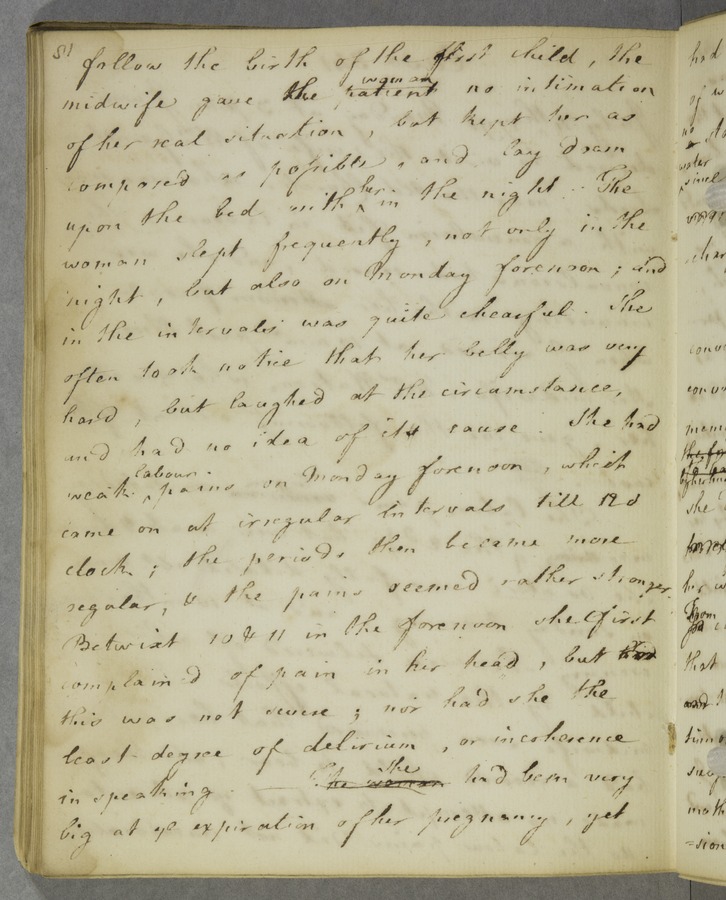 51
follow the birth of the first child, the
midwife gave the patient woman no intimation
of her real situation, but kept her as
composed as possible, and lay down
upon the bed with her in the night. The
woman slept frequently, not only in the
night, but also on Monday forenoon; and
in the intervals was quite chearful. She
often took notice that her belly was very
hard, but laughed at the circumstance,
and had no idea of its cause. She had
weak labour pains on Monday forenoon, which
came on at irregular intervals till 12 o
clock; the periods then became more
regular, & the pains seemed rather stronger
Betwixt 10 & 11 in the forenoon she first
complain'd of pain in her head, but
this was not severe; nor had she the
least degree of delirium, or incoherence
in speaking. — The woman She had been very
big at ye expiration of her pregnancy, yet
had
of w
she
her w
that